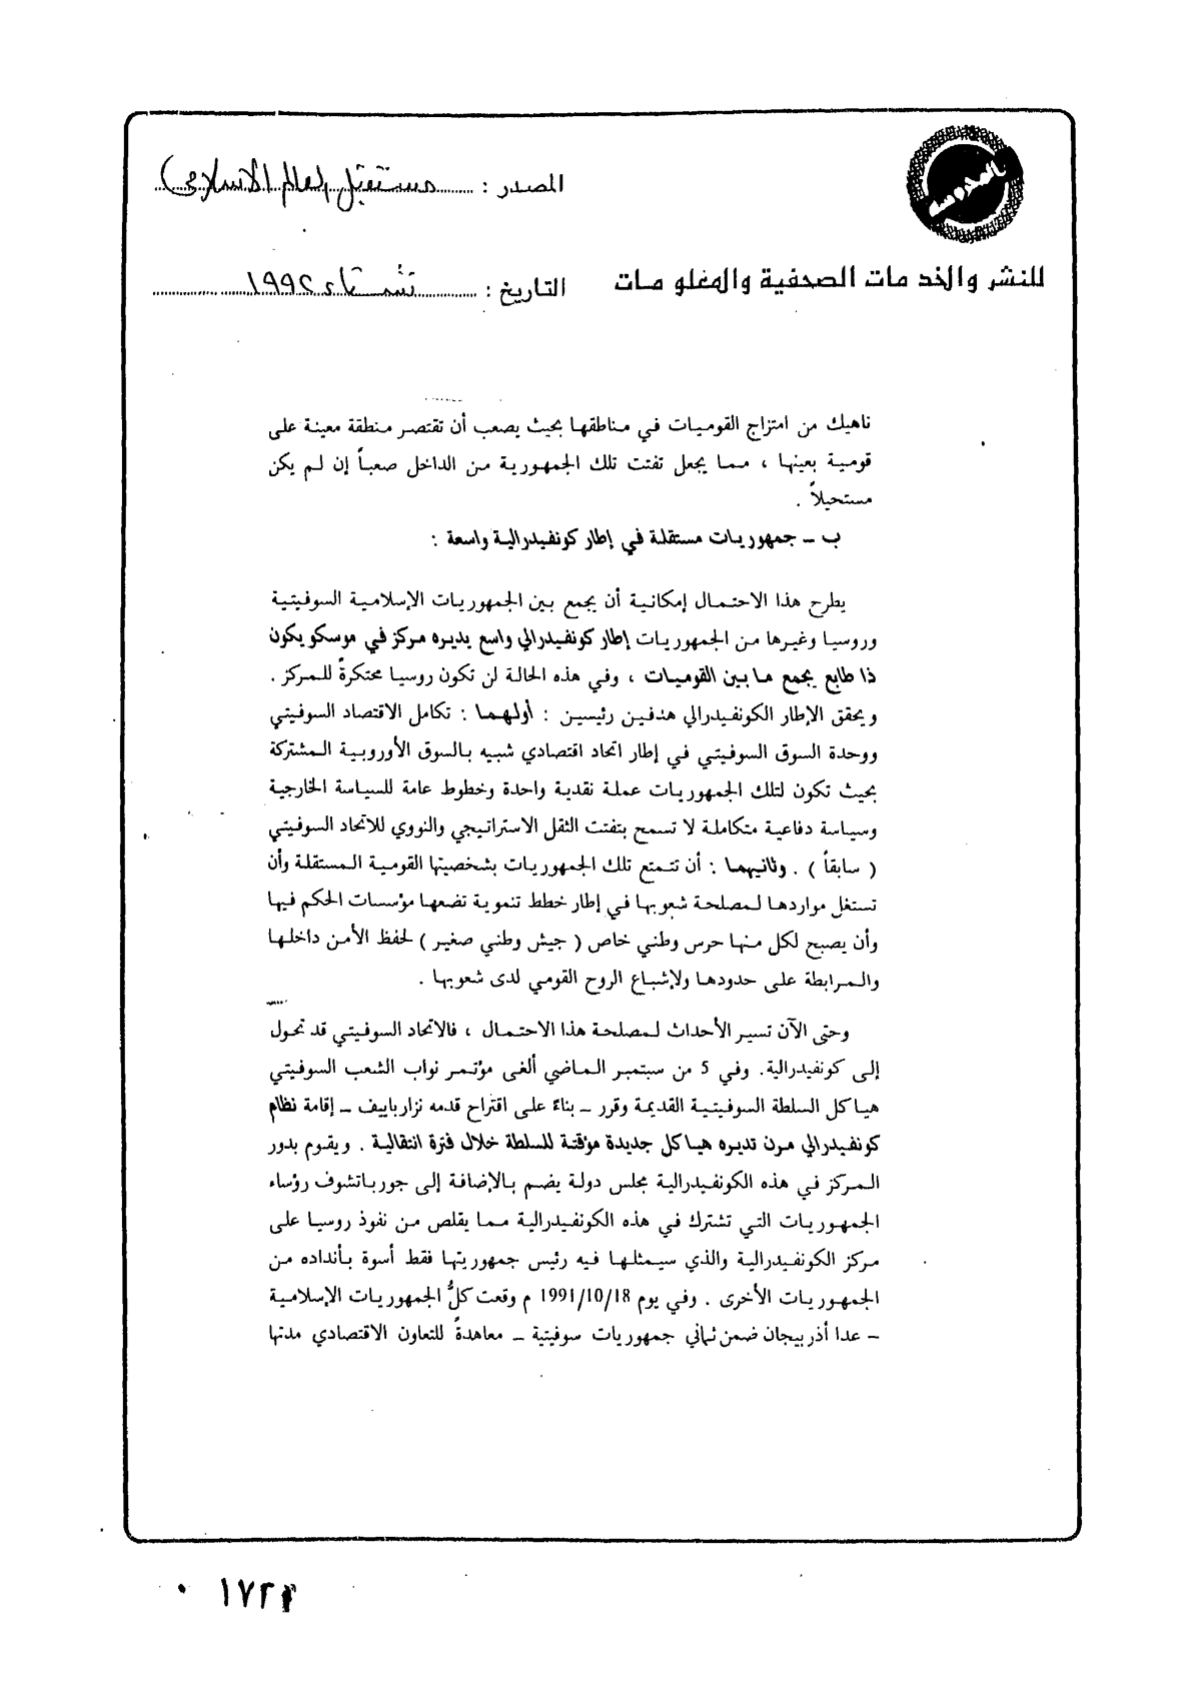 المحروسة
المصدر : مستقبل العالم الاسلامى
للنشر والخدمات الصحفية والمعلومات
التاريخ : شتاء ١٩٩٢
ناهيك من امتزاج القوميات في مناطقها بحيث يصعب أن تقتصر منطقة معينة على
قومية بعينها ، مما يجعل تفتت تلك الجمهورية من الداخل صعباً إن لم يكن
مستحيلاً .
ب ـ جمهوريات مستقلة في إطار كونفيدرالية واسعة :
يطرح هذا الاحتمال إمكانية أن يجمع بين الجمهوريات الإسلامية السوفيتية
وروسيا وغيرها من الجمهوريات إطار كونفيدرالي واسع يديره مركز في موسكو يكون
ذا طابع يجمع ما بين القوميات ، وفي هذه الحالة لن تكون روسيا محتكرةً للمركز .
ويحقق الإطار الكونفيدرالي هدفين رئيسين : أولهما : تكامل الاقتصاد السوفيتي
ووحدة السوق السوفيتي في إطار اتحاد اقتصادي شبيه بالسوق الأوروبية المشتركة
بحيث تكون لتلك الجمهوريات عملة نقدية واحدة وخطوط عامة للسياسة الخارجية
وسياسة دفاعية متكاملة لا تسمح بتفتت الثقل الاستراتيجي والنووي للاتحاد السوفيتي
( سابقاً ) . وثانيهما : أن تتمتع تلك الجمهوريات بشخصيتها القومية المستقلة وأن
تستغل مواردها لمصلحة شعوبها في إطار خطط تنموية تضعها مؤسسات الحكم فيها
وأن يصبح لكل منها حرس وطني خاص ( جيش وطني صغير ) لحفظ الأمن داخلها
والمرابطة على حدودها ولإشباع الروح القومي لدى شعوبها .
وحتى الآن تسير الأحداث لمصلحة هذا الاحتمال ، فالاتحاد السوفيتي قد تحول
إلى كونفيدرالية. وفي 5 من سبتمبر الماضي ألغى مؤتمر نواب الشعب السوفيتي
هياكل السلطة السوفيتية القديمة وقرر ـ بناءً على اقتراح قدمه نزارباييف ـ إقامة نظام
كونفيدرالي مرن تديره هياكل جديدة مؤقتة للسلطة خلال فترة انتقالية . ويقوم بدور
المركز في هذه الكونفيدرالية مجلس دولة يضم بالإضافة إلى جورباتشوف رؤساء
الجمهوريات التي تشترك في هذه الكونفيدرالية مما يقلص من نفوذ روسيا على
مركز الكونفيدرالية والذي سيمثلها فيه رئيس جمهوريتها فقط أسوة بأنداده من
الجمهوريات الأخرى . وفي يوم 1991/10/18 م وقعت كلُّ الجمهوريات الإسلامية
ـ عدا أذربيجان ضمن ثماني جمهوريات سوفيتية ـ معاهدةً للتعاون الاقتصادي مدتها